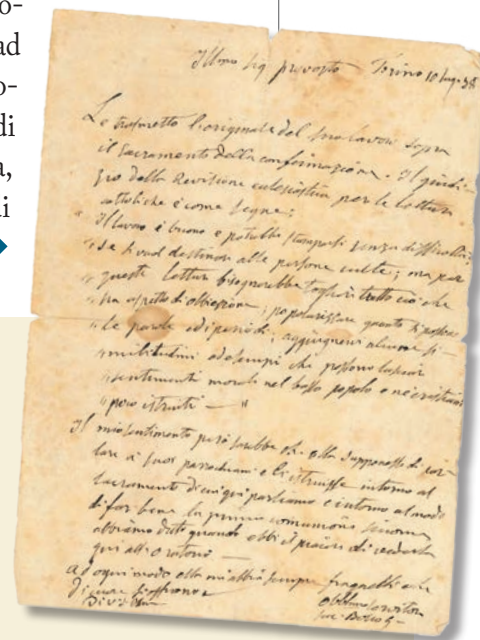 o-
ad
o-
di
a,
di
Ill.mo Sig prevosto Torino 10 lug. 58
Le trasmetto l'originale del suo lavoro sopra
il sacramento della confermazione. Il giudi-
zio della Revisione eclesiastica per le letture
cattoliche è come segue:
" Il lavoro è buono e potrebbe stamparsi senza difficoltà
" se si vuol destinar alle persone culte; ma per
" queste letture bisognerebbe togliere tutto ciò che
" ha aspetto di obbiezione; popolarizzare quanto si possa
" le parole ed i periodi; aggiugnervi alcune si-
" militudini ed esempi che possono lasciar
" sentimenti morali nel basso popolo e ne' cristiani
" poco istruiti — "
Il mio sentimento però sarebbe che ella supponesse di par-
lare a' suoi parochiani e li istruisse intorno al
sacramento di cui qui parliamo e intorno al modo
di far bene la prima comunione
abbiamo detto quando ebbi il piacere di vederla
qui all'oratorio —
Ad ogni modo ella mi abbia sempre
Di cuore
Di V. S. Ill.ma
Obbl.mo servitore
Sac. Bosco G.